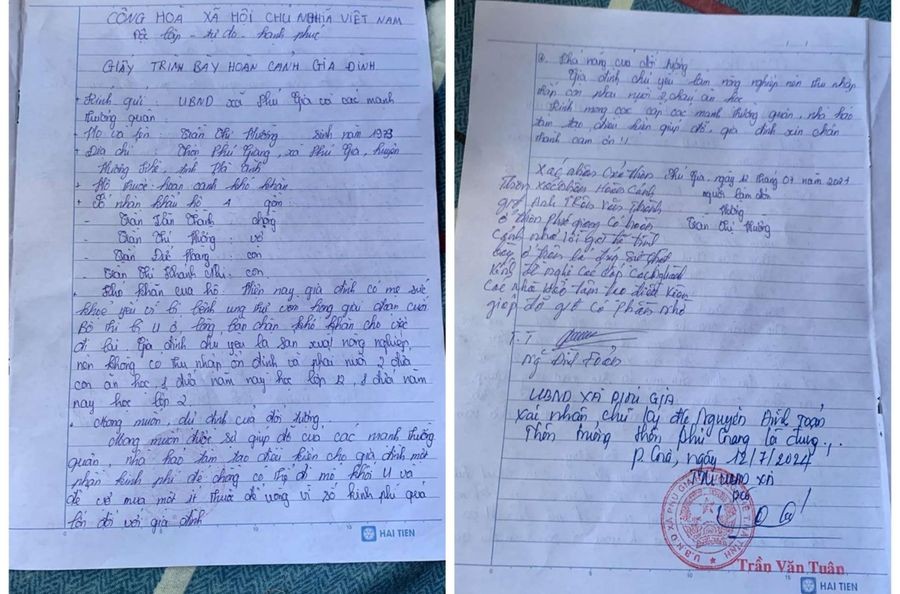 CỘNG HOÀ XÃ HỘI CHỦ NGHĨA VIỆT NAM
Độc lập - tự do - hạnh phúc
GIẤY TRÌNH BÀY HOÀN CẢNH GIA ĐÌNH
+ Kính gửi: UBND xã Phú Gia và các mạnh
thường quân
+ Họ và tên: Trần Thị Phương sinh năm 1973
+ Địa chỉ: Thôn Phú Giang, xã Phú Gia, huyện
Hương Khê, tỉnh Hà Tĩnh
+ Hộ thuộc: hoàn cảnh khó khăn
+ Số nhân khẩu hộ 4 gồm
- Trần Văn Thành : chồng
- Trần Thị Phương : vợ
- Trần Đức Hoàng : con
- Trần Thị Khánh Nhi : con
+ Khó khăn của hộ: Hiện nay, gia đình có mẹ sức
khoẻ yếu vì bị bệnh ung thư vòm họng giai đoạn cuối
Bố thì bị U ở lòng bàn chân khó khăn cho việc
đi lại. Gia đình chủ yếu là sản xuất nông nghiệp,
nên không có thu nhập ổn định và phải nuôi 2 đứa
con ăn học, 1 đứa năm nay học lớp 12, 1 đứa năm
nay học lớp 2
+ Mong muốn, dự định của đối tượng
Mong muốn được sự giúp đỡ của các mạnh thường
quân, nhà hảo tâm tạo điều kiện cho gia đình một
phần kinh phí để chồng có thể đi mổ khối U và
để vợ mua một ít thuốc để uống vì số kinh phí quá
lớn đối với gia đình
HẢI TIẾN
+ Khả năng của đối tượng
Gia đình chủ yếu làm nông nghiệp nên thu nhập
thấp còn phải nuôi 2 cháu ăn học
Kính mong các cấp các mạnh thường quân, nhà hảo
tâm tạo điều kiện giúp đỡ, gia đình xin chân
thành cảm ơn!!
Xác nhận của thôn
Phú Gia, ngày 12 tháng 07 năm 2024
Thôn xác nhận Hoàn Cảnh
người làm đơn
gđ Anh Trần Văn Thành
Phương
ở thôn Phú Giang Có hoàn
Trần Thị Phương
Cảnh như lời gđ trình
bày ở trên là đúng sự thật
Kính đề nghị các cấp
các nhà hảo tâm tạo điều kiện
giúp đỡ gđ có phần nhỏ
T.T
Ng Đình Toản
UBND XÃ PHÚ GIA
Xác nhận chữ ký Nguyễn Đình Toản
Thôn trưởng thôn Phú Giang là đúng.
P.Gia, ngày 12/7/2024
TM UBND XÃ
PCT
Trần Văn Tuân
HẢI TIẾN